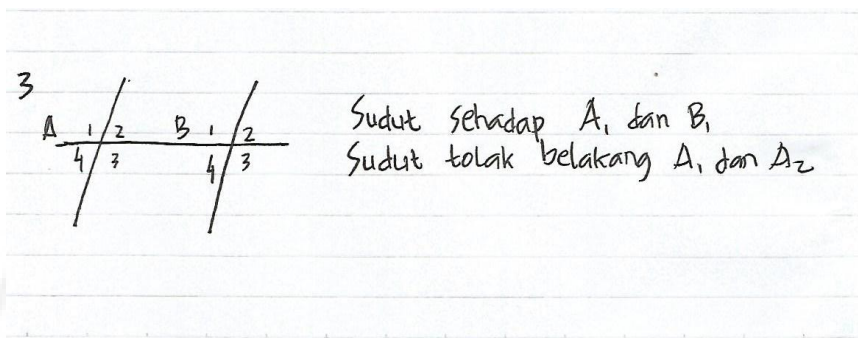 3
A 1 2 B 1 2
4 3 4 3
Sudut sehadap A₁ dan B₁
Sudut tolak belakang A₁ dan A₂